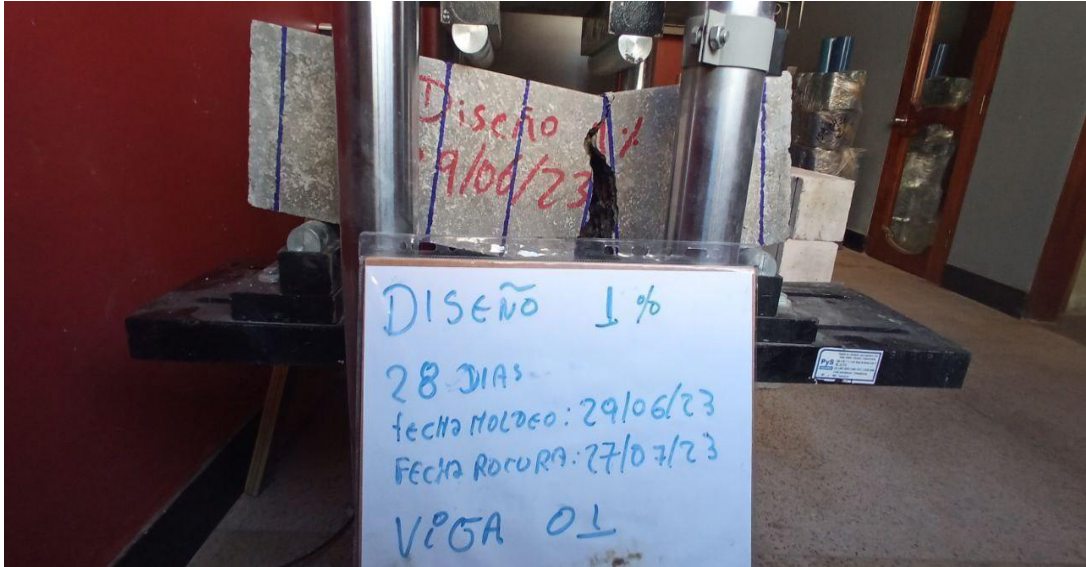 Diseño 1%
29/06/23
DISEÑO 1 %
28 DIAS
FECHA MOLDEO: 29/06/23
FECHA ROTURA: 27/07/23
VIGA 01
PyS